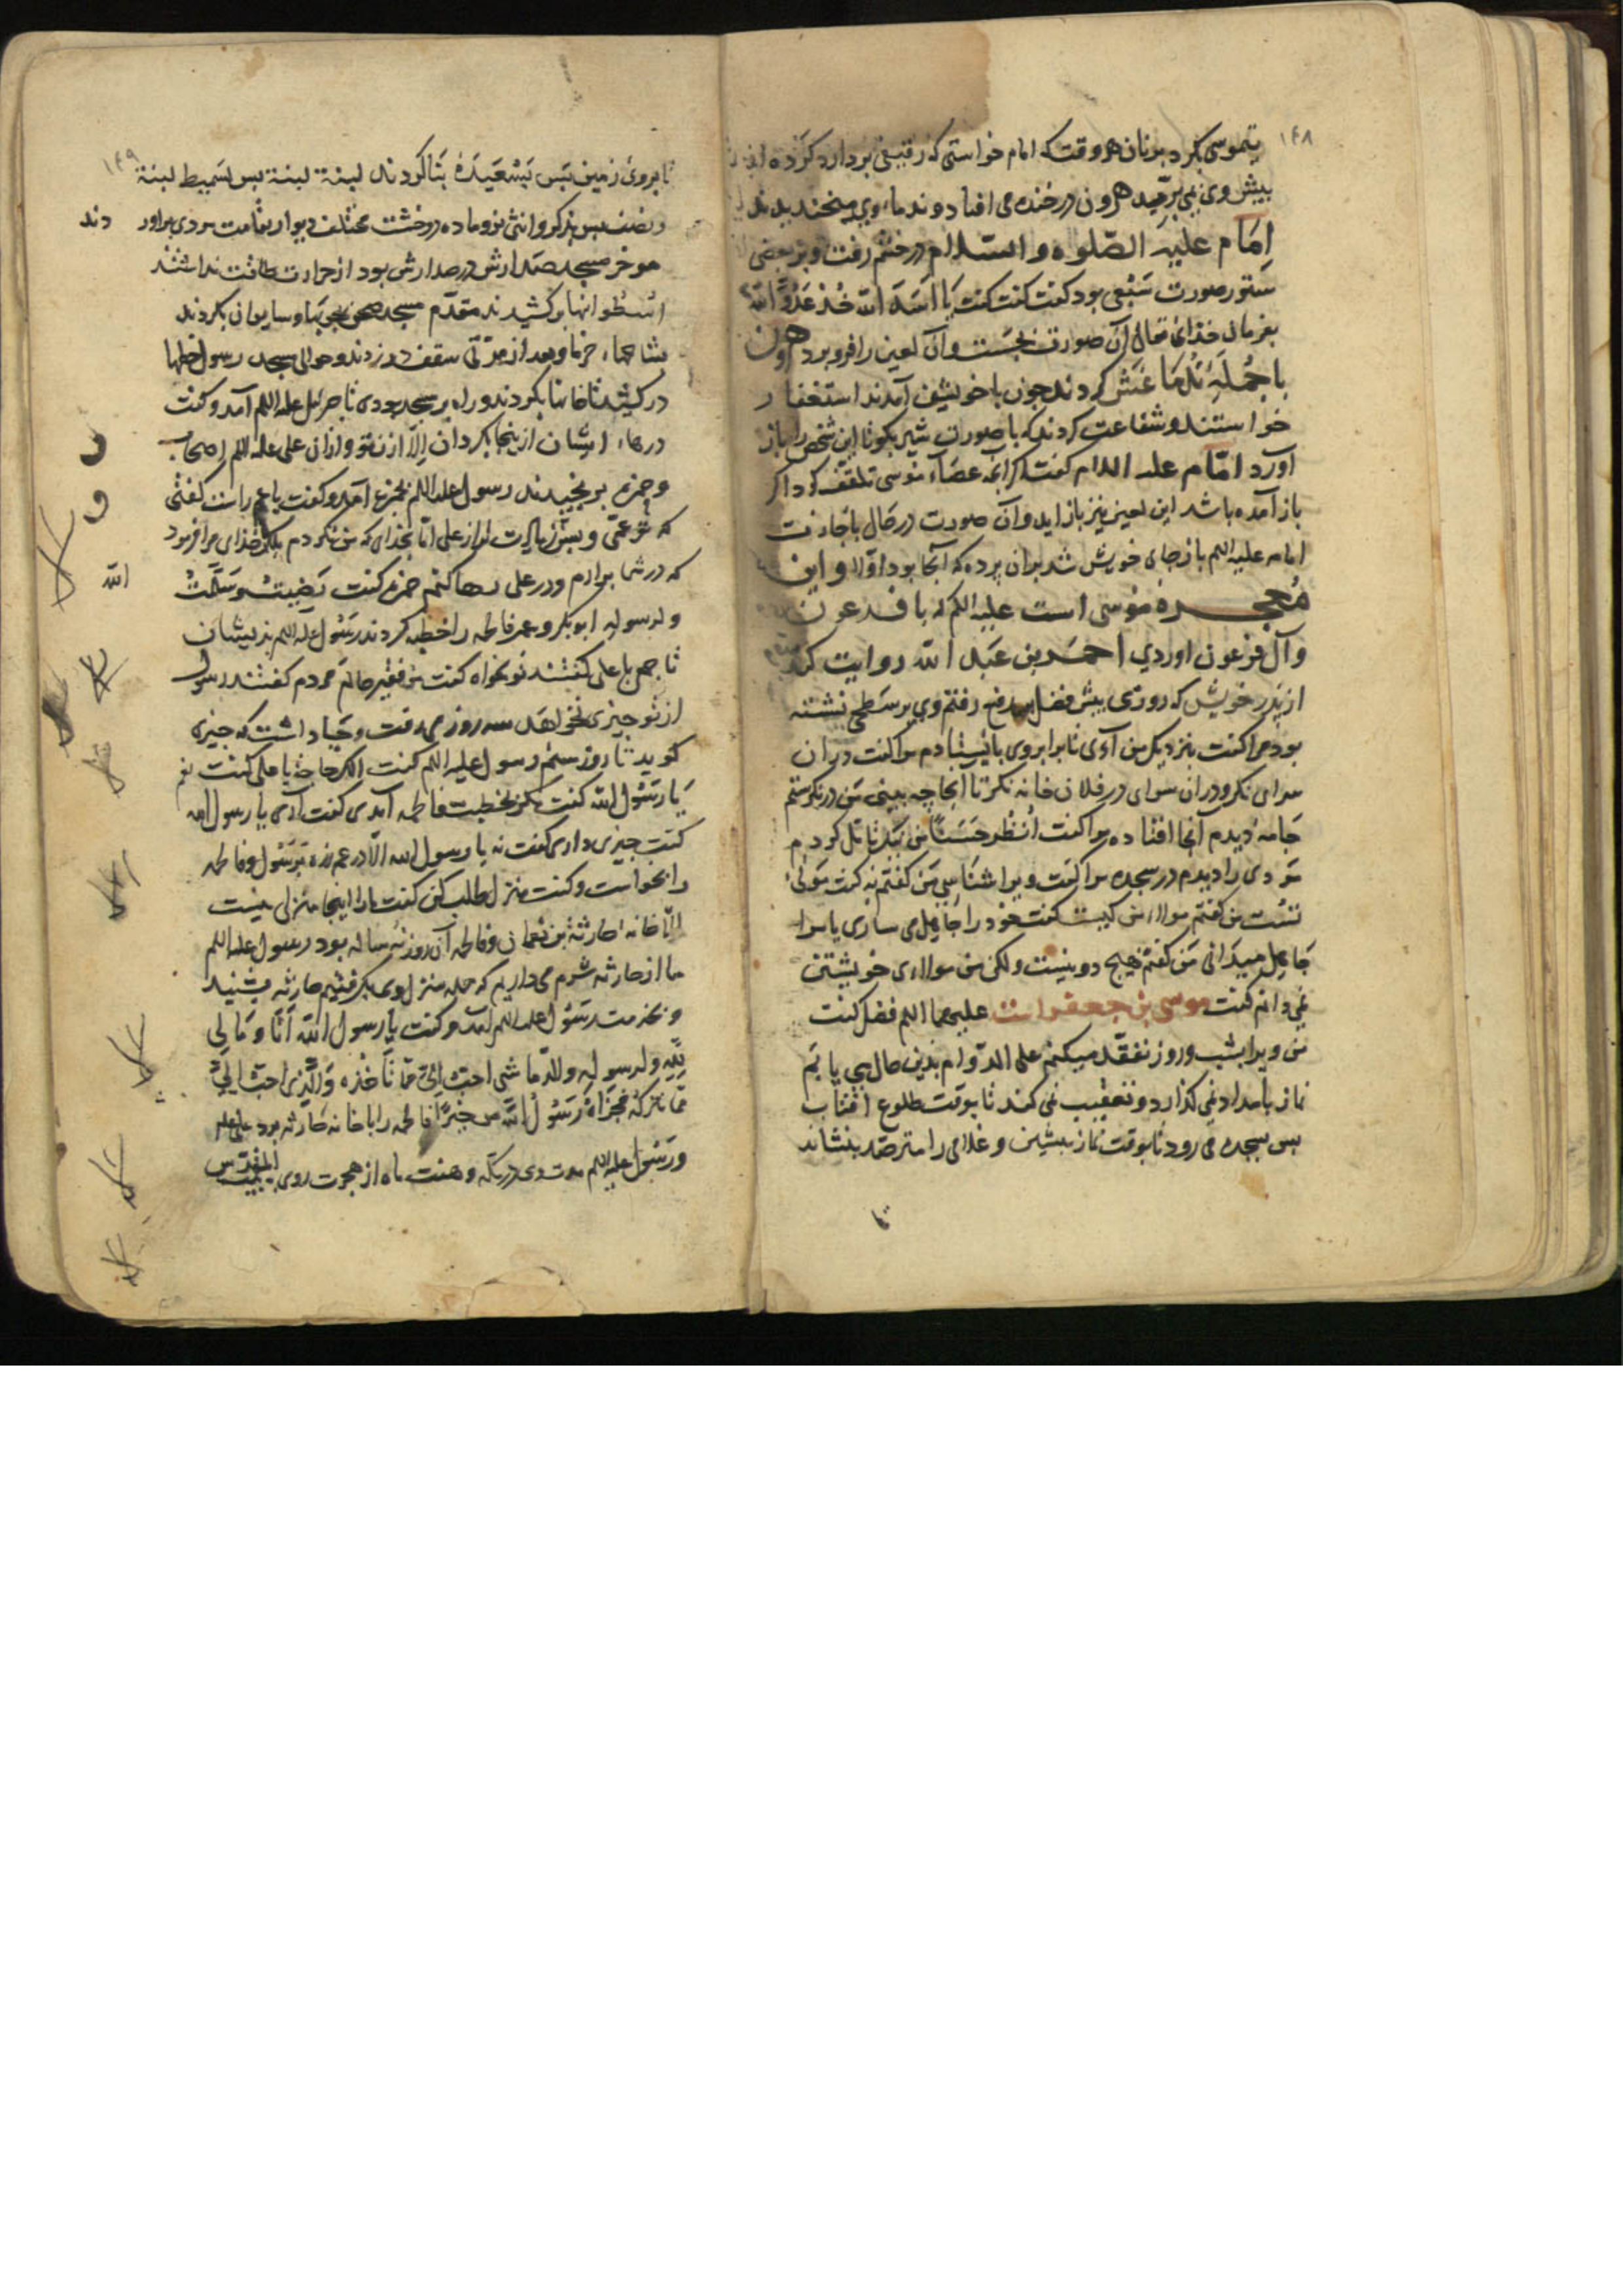 ۱۴۸
بتموسی بکرد بر نان هر وقت که امام خواستی که رغیفی بردارد کرده از
پیش وی بپریدی هرون در خنده می افتاد و ندماء وی میخندیدند
امام علیه الصّلوه و السّلام در خشم رفت و بر بعضی
ستور صورت سَبُعی بود کفت کفت یا اسَدَ الله خُذ عَدُوَّ الله
بفرمان خذای تعالی آن صورت بجَست و آن لعین را فرو برد هرون
با جُملَهٔ نُدَمَا غش کردند جون با خویشتن آمدند استغفار
خواستند و شفاعت کردند که با صورت شیر بکو تا این شخص را باز
آورد امّام علیه السلام کفت اکر آنچه عصاء موسی تلقف کرد اکر
باز آمده باشد این لعین نیز باز آید و آن صورت در حال با جاء رفت
امام علیه السلم باز جای خویش شد بران پرده که آنجا بود اوّلا و این
مُعجزه موسی است علیه السلم که با فرعون
و آل فرعون اوردی احمَد بن عَبد الله روایت کرد
از پَدر خویش که روزی پیش فضل بن ربیع رفتم وی بر سَطحی نشسته
بود مرا کفت نزدیک من آی تا برابر وی باایستادم مرا کفت در ان
سرای نکر و در ان سرای در فلان خانه نکر تا انجا چه بینی مَن در نکرستم
جامهٔ دیدم آنجا افتاده مرا کفت اُنظُر حَسَنًا من نیک تامّل کردم
مَردی را دیدم در سجده مرا کفت ویرا شنَاسی مَن کفتم نه کفت مَولیٰ
تست من کفتم مولاء من کیست کفت خود را جاهل می سازی یا مرا
جاهل میدانی مَن کفتم هیچ دو نیست ولکن من مولاءی خویشتن
نمی دانم کفت موسی بن جعفر است علیهما السلم فضل کفت
من ویرا بشب و روز تفقّد میکنم علی الدّوام بدین حال می یابم
نماز بامداد می کذارد و تعقیب می کند تا بوقت طلوع افتاب
پس بسجده می رود تا بوقت نماز پیشین و غلامی را مترصّد بنشاند
تا
۱۴۹
تا بروی زمین پَس بَسَعیدَهٔ بنا کردند لبنة لبنة پس بسَمیط لبنة
و نصف پس بذکر و انثی نر و ماده دو خشت مختلف دیوار بقامت مردی براور دند
موخر مسجد صد ارش در صد ارش بود از حرارت طاقت نداشتند
اُسطُوانها برکشیدند مقدّم مسجد صحن بچوبها و سایوان بکردند
بشاخهاء خرما و بعد از مدّتی سقف در زدند و حوالی مسجد رسول خطها
در کشید تا خانها بکردند و راه بر مسجد بودی تا جبرئیل علیه السلم آمد و کفت
درهاء ایشان از ینجا بکردان اِلّا از ان تو و از ان علی علیه السلم اصحاب
و حمزه برنجیدند رسول علیه السلم بحمزه آمد و کفت یا عم راست کفتی
که تو عمّی و بسن زیادت تر از علی امّا بخدای که من نکردم بلکه خذای مرا فرمود
که در شما بر آرم و در علی رها کنم حمزه کفت رَضِیتُ و سَلَّمتُ
الله
و لرسوله ابوبکر و عمر فاطمه را خطبه کردند رسُول علیه السلم بذیشان
تا جمعی با علی کفتند تو بخواه کفت من فقیر حالم مردم کفتند رسول
از تو جیزی نخواهد سه روز می رفت و حیا داشت که جیزی
کوید تا روز ستم رسول علیه السلم کفت الک حاجة یا علی کفت نعم
یا رسُول الله کفت مکر بخطبت فاطمه آمدی کفت آری یا رسول الله
کفت جیزی داری کفت نه یا رسول الله الّا درعی زره رسُول فاطمه
را بخواست و کفت منزل طلب کن کفت ما را اینجا منزلی نیست
الّا خانه حارثة بن نعمان و فاطمه آن روز نه ساله بود رسول علیه السلم
ما از حارثه شرم می داریم که جمله منزل وی بکرفتیم حارثه بشنید
و بخدمت رسُول علیه السلم آمد و کفت یا رسول الله اَنَا وَ مَا لِی
لِلّه و لرسوله و الله مَا شی احبّ اِلَیَّ ممّا تأخُذه وَ الّذی احبّ اِلَیَّ
ممّا تترکه فجَزَاهُ رَسُولُ الله من خیرًا فاطمه را با خانه حارثه برد علی علم
و رسُول علیه السلم مدت دی در مکّه و هفت ماه از هجرت روی ببیت المقدس